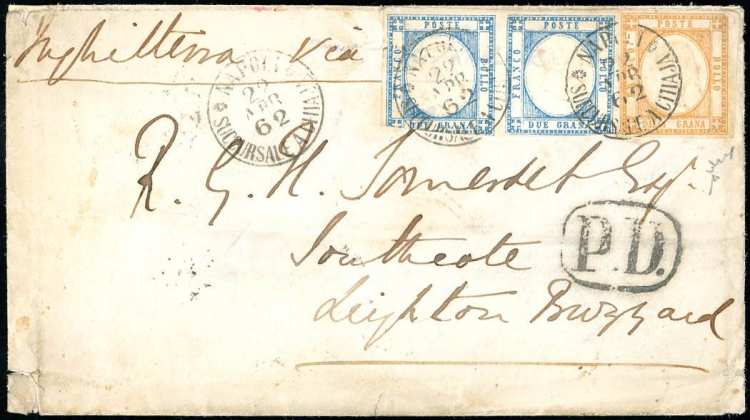 POSTE POSTE POSTE
FRANCO BOLLO FRANCO BOLLO BOLLO
GRANA DUE GRANA GRANA
Inghilterra via
NAPOLI
22
APR
62
SUCCURSALE A CHIAIA
22
APR
62
NAPOLI
APR
62
R. G. H. Somerset Esq.
Southcote
Leighton Buzzard
P.D.